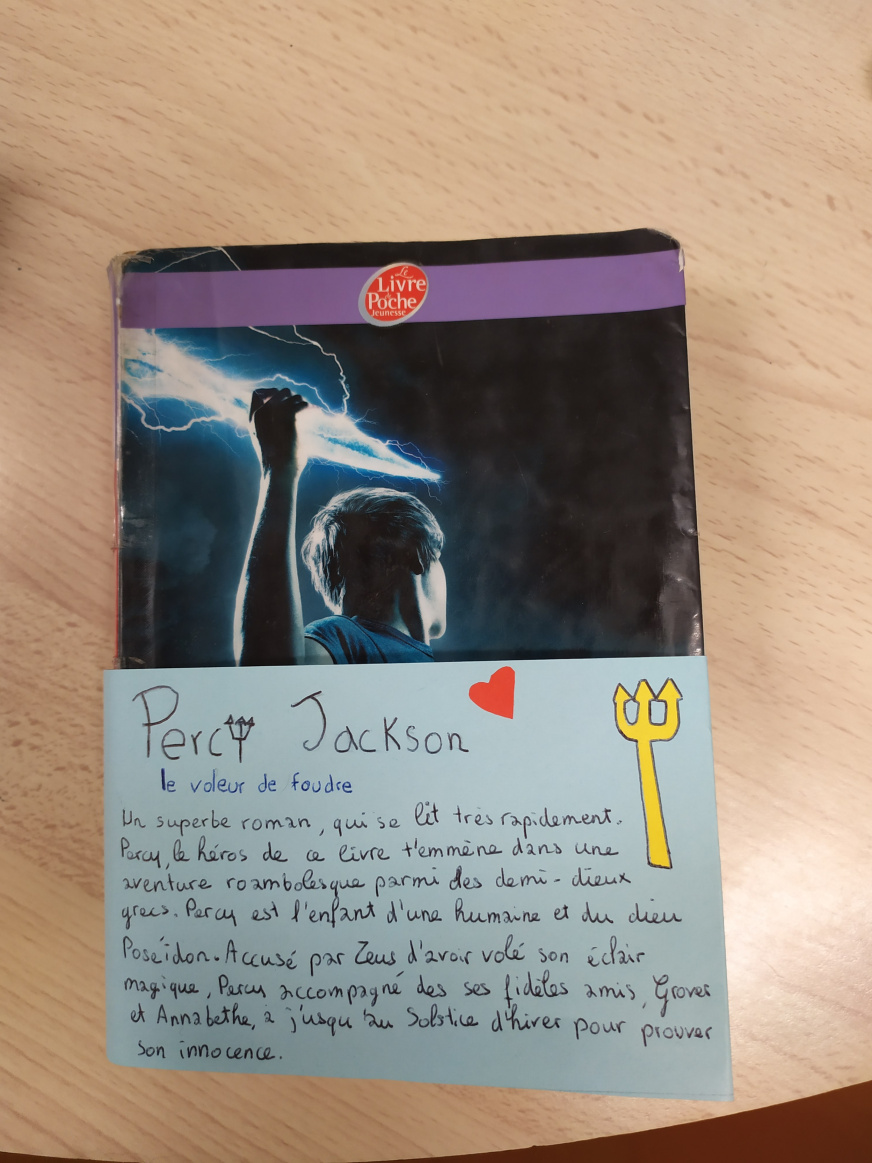 Le
Livre
de
Poche
Jeunesse
Percy Jackson
le voleur de foudre
Un superbe roman, qui se lit très rapidement.
Percy, le héros de ce livre t'emmène dans une
aventure roambolesque parmi des demi-dieux
grecs. Percy est l'enfant d'une humaine et du dieu
Poséidon. Accusé par Zeus d'avoir volé son éclair
magique, Percy accompagné des ses fidèles amis, Grover
et Annabethe, a j'usqu'au Solstice d'hiver pour prouver
son innocence.